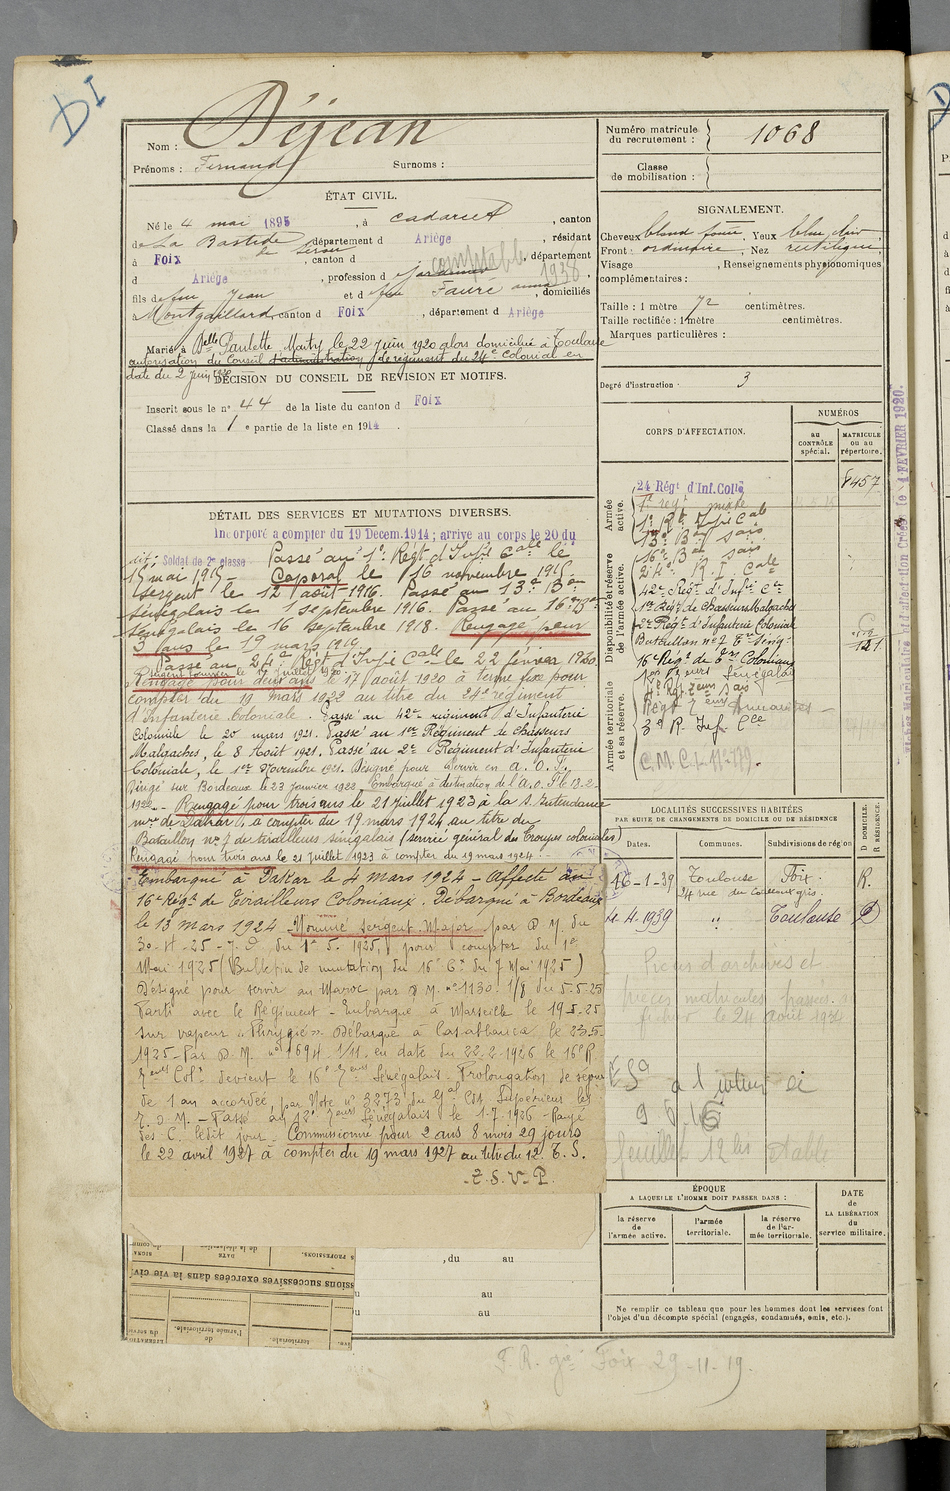 DI
Nom : Déjean
Prénoms : Fernand Surnoms :
Numéro matricule du recrutement : 1068
Classe de mobilisation :
ÉTAT CIVIL.
Né le 4 mai 1895, à Cadarcet, canton
de La Bastide de Sérou, département d Ariège, résidant
à Foix, canton d , département
d Ariège, profession d jardinier comptable 1938
fils de feu Jean et d feu Faure anna, domiciliés
à Montgaillard, canton d Foix, département d Ariège
Marié à Delle Paulette Maity, le 22 juin 1920 alors domicilié à Toulouse
autorisation du Conseil d'administration du régiment du 24e Colonial en
date du 2 juin 1920
DÉCISION DU CONSEIL DE REVISION ET MOTIFS.
Inscrit sous le n° 44 de la liste du canton d Foix
Classé dans la 1e partie de la liste en 1914.
SIGNALEMENT.
Cheveux blond foncé, Yeux bleu clair
Front : ordinaire, Nez rectiligne
Visage , Renseignements physionomiques
complémentaires :
Taille : 1 mètre 72 centimètres.
Taille rectifiée : 1 mètre centimètres.
Marques particulières :
Degré d'instruction : 3
CORPS D'AFFECTATION.
NUMÉROS
AU CONTRÔLE spécial.
MATRICULE ou au répertoire.
Armée active.
Disponibilité et réserve de l'armée active.
Armée territoriale et sa réserve.
24 Régt d'Inf. Colle 8457
1er regt mixte
1er Rt Infie Cale
13e Bon sais
16e Bon sais
24e R. I. Cale
42e Régt d'Infie Cle
1er Régt de Chasseurs Malgaches
2e Régt d'Infanterie Coloniale
Bataillon n° 7 Trs Sénég. 121
16e Régt de Trs Coloniaux
Sénégalais
3e R. Inf. Cle
C.M.C.I. N° 179.
Fiches Matriculaire et d'affectation Créées le 4 FÉVRIER 1920.
DÉTAIL DES SERVICES ET MUTATIONS DIVERSES.
Incorporé a compter du 19 Décem. 1914 ; arrivé au corps le 20 du
dit; Soldat de 2e classe Passé au 1er Régt d'Infie Cale le
15 mai 1915 - Caporal le 16 novembre 1915.
Sergent le 12 août 1916. Passé au 13e Bon
sénégalais le 1 septembre 1916. Passé au 16e Bon
sénégalais le 16 septembre 1918. Rengagé pour
3 ans le 19 mars 1919
Passé au 24e Régt d'Infie Cale le 22 février 1920.
Rengagé pour deux ans le 17 août 1920 à terme fixe pour
compter du 19 mars 1922 au titre du 24e régiment
d'Infanterie Coloniale. Passé au 42e régiment d'Infanterie
Coloniale le 20 mars 1921. Passé au 1er Régiment de Chasseurs
Malgaches, le 8 Août 1921. Passé au 2e Régiment d'Infanterie
Coloniale, le 1er Novembre 1921. Désigné pour servir en A. O. F.
Dirigé sur Bordeaux le 23 janvier 1922. Embarqué à destination de l'A. O. F. le 13.2
1922 - Rengagé pour trois ans le 21 juillet 1923 à la S. Intendance
mre de Dakar, à compter du 19 mars 1924 au titre du
Bataillon n° 7 de tirailleurs sénégalais (service général des Troupes coloniales)
Rengagé pour trois ans le 21 juillet 1923 à compter du 19 mars 1924.
Embarqué à Dakar le 4 mars 1924 - Affecté au
16e Régt de Tirailleurs Coloniaux. Débarqué à Bordeaux
le 13 mars 1924 - Nommé sergent-Major par D M. du
30-4-25 du 1er 5. 1925, pour compter du 1er
Mai 1925 (Bulletin de mutation du 16e Ct du 7 Mai 1925)
Désigné pour servir au Maroc par D M. n° 1130. 1/8 du 5-5-25
Parti avec le Régiment - Embarqué à Marseille le 19-5-25
sur vapeur "Phrygie" Débarqué à Casablanca le 23-5-
1925 - Par D. M. n° 1694 1/11. en date du 22-2-1926 le 16e R.
Teurs Colx devient le 16e Teurs Sénégalais - Prolongation de séjour
de 1 an accordée par Note n° 3273 du Gal Cdt Supérieur les
T. D M. - Passé au 12e Teurs Sénégalais le 1-7-1926 - Rayé
des C. ledit jour - Commissionné pour 2 ans 8 mois 29 jours
le 22 avril 1927 à compter du 19 mars 1927 au titre du 12. T. S.
- T. S. V. P.
LOCALITÉS SUCCESSIVES HABITÉES
PAR SUITE DE CHANGEMENTS DE DOMICILE OU DE RÉSIDENCE
Dates. Communes. Subdivisions de région D DOMICILE. R RÉSIDENCE.
16-1-39 Toulouse Foix. R.
24 rue du
4. 1939 " Toulouse D
Pièces d'archives et
pièces matricules passées au
fichier le 24 août 1934
à l'intérieur
feuillet 12 bis
ÉPOQUE
A LAQUELLE L'HOMME DOIT PASSER DANS :
la réserve de l'armée active.
l'armée territoriale.
la réserve de l'armée territoriale.
DATE DE LA LIBÉRATION du service militaire.
Ne remplir ce tableau que pour les hommes dont les services font
l'objet d'un décompte spécial (engagés, condamnés, omis, etc.).
, du au
u au
u au
ssions successives exercées dans la vie civi
PROFESSIONS.
DATE
l'armée territoriale.
territoriale.
F. R. gie Foix 29-11-19.